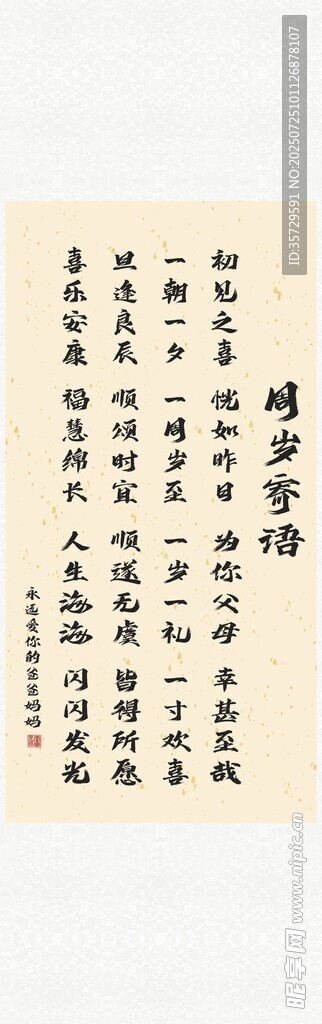 周岁寄语
初见之喜 恍如昨日 为你父母 幸甚至哉
一朝一夕 一周岁至 一岁一礼 一寸欢喜
旦逢良辰 顺颂时宜 顺遂无虞 皆得所愿
喜乐安康 福慧绵长 人生海海 闪闪发光
永远爱你的爸爸妈妈
ID:35729591 NO:20250725101126878107
昵享网 www.nipic.cn